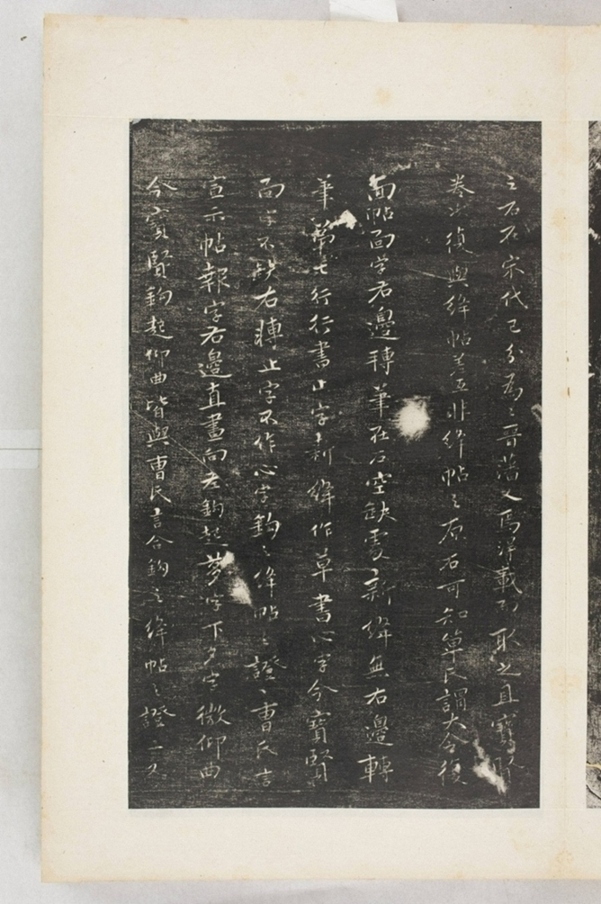 之石石宋代已分為二晉藩又焉能載而取之且寶賢
卷次復與絳帖差互非絳帖之原石可知單氏謂大令復
面帖面字右邊轉筆在石空缺處新絳無右邊轉
筆第七行行書止字新絳作草書心字今寶賢
面字不缺右轉止字不作心字鉤之絳帖之證曹氏言
宣示帖報字右邊直畫向左鉤起夢字下夕字微仰曲
今寶賢鉤起仰曲皆與曹氏言合鉤之絳帖之證二又